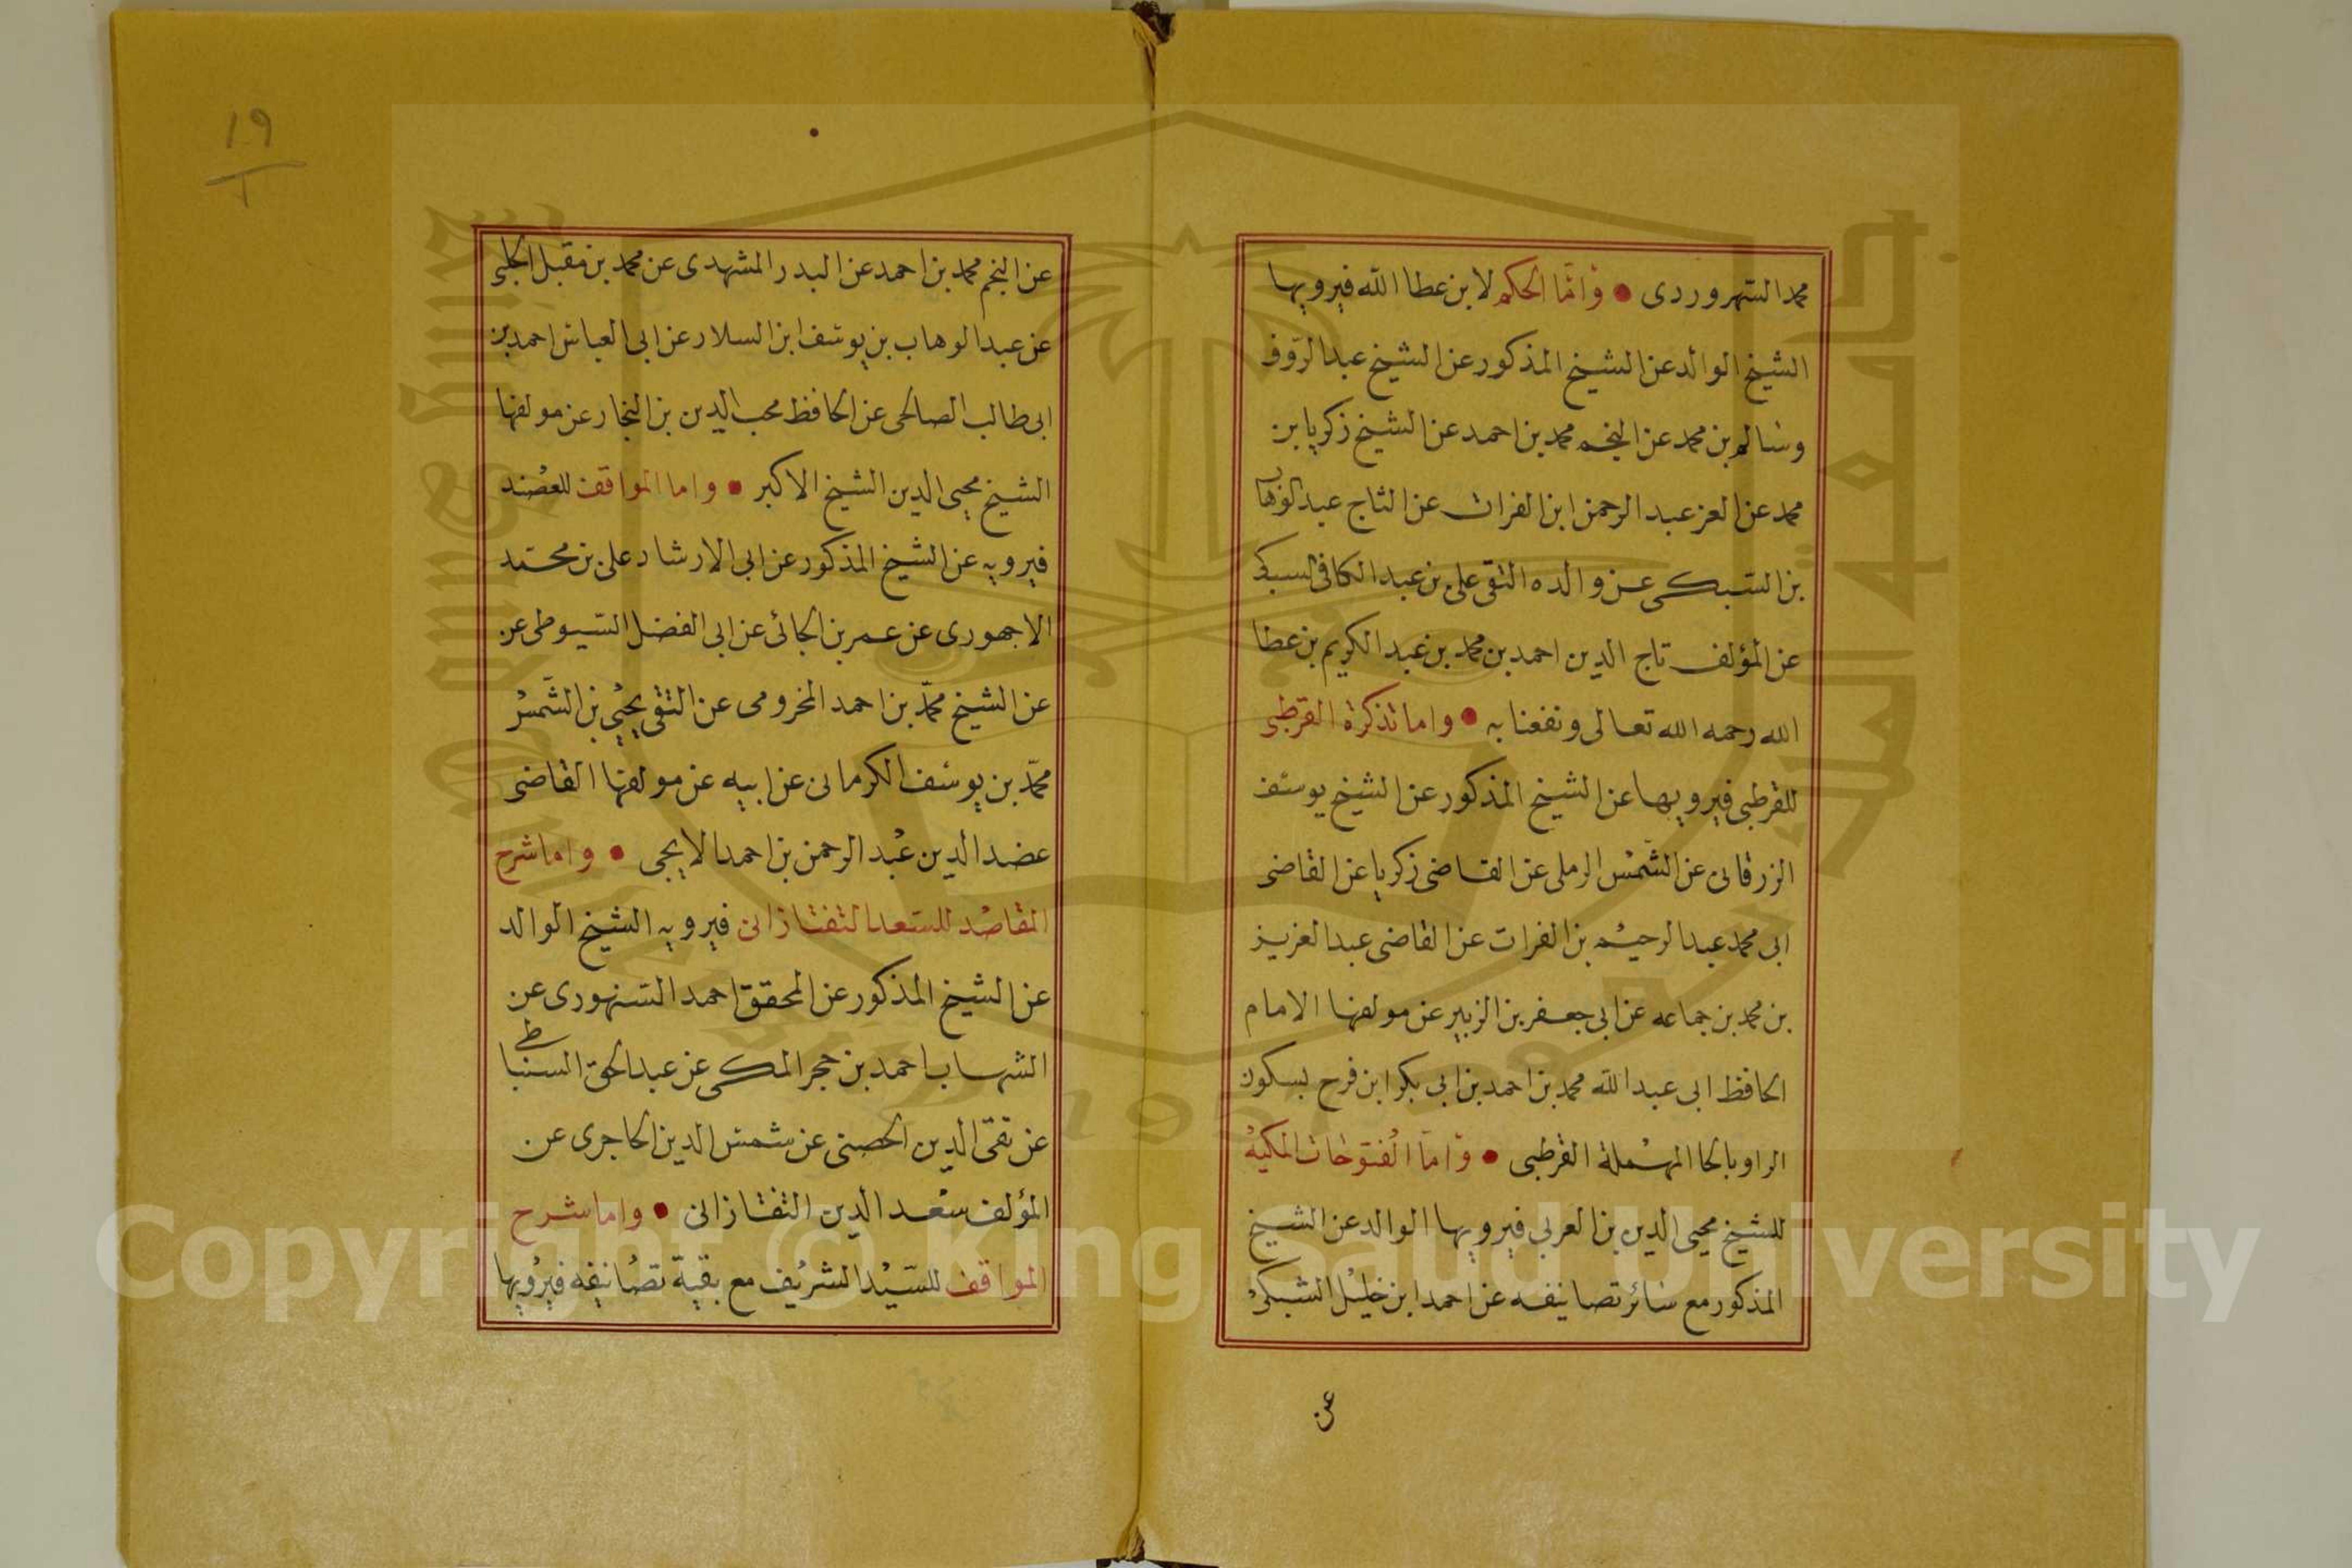 محمد السهروردى • وَاَمَّا الحكم لابن عطا الله فيرويها
الشيخ الوالد عن الشيخ المذكور عن الشيخ عبد الرؤف
وسالم بن محمد عن النجم محمد بن احمد عن الشيخ زكريا بن
محمد عن العز عبد الرحمن ابن الفرات عن التاج عبد الوهاب
بن السبكى عن والده التقى على بن عبد الكافى السبكى
عن المؤلف تاج الدين احمد بن محمد بن عبد الكريم بن عطا
الله رحمه الله تعالى ونفعنا به • واما تذكرة القرطبى
للقرطبى فيرويها عن الشيخ المذكور عن الشيخ يوسف
الزرقانى عن الشمس الرملى عن القاضى زكريا عن القاضى
ابى محمد عبد الرحيم بن الفرات عن القاضى عبد العزيز
بن محمد بن جماعه عن ابى جعفر بن الزبير عن مولفها الامام
الحافظ ابى عبد الله محمد بن احمد بن ابى بكر ابن فرح بسكون
الراو بالحا المهملة القرطبى • وَاَمَّا الفتوحات المكيه
للشيخ محيى الدين بن العربى فيرويها الوالد عن الشيخ
المذكور مع سائر تصانيفه عن احمد ابن خليل الشبكى
عن
19
عن النجم محمد بن احمد عن البدر المشهدى عن محمد بن مقبل الحلبى
عن عبد الوهاب بن يوسف ابن السلار عن ابى العباس احمد بن
ابى طالب الصالحى عن الحافظ محب الدين بن النجار عن مولفها
الشيخ محيى الدين الشيخ الاكبر • واما المواقف للعضد
فيرويه عن الشيخ المذكور عن ابى الارشاد على بن محمد
الاجهورى عن عمر بن الجائى عن ابى الفضل السيوطى عن
عن الشيخ محمّد بن احمد المخرومى عن التقى يحيى بن الشمس
محمّد بن يوسف الكرمانى عن ابيه عن مولفها القاضى
عضد الدين عبد الرحمن بن احمد الايجى • واما شرح
المقاصد للسعد التفتازانى فيرويه الشيخ الوالد
عن الشيخ المذكور عن المحقق احمد السنهورى عن
الشهاب احمد بن حجر المكى عن عبد الحق السنباطى
عن تقى الدين الحصنى عن شمس الدين الحاجرى عن
المؤلف سعد الدين التفتازانى • واما شرح
المواقف للسيد الشريف مع بقية تصانيفه فيرويها
Copyright © King Saud University